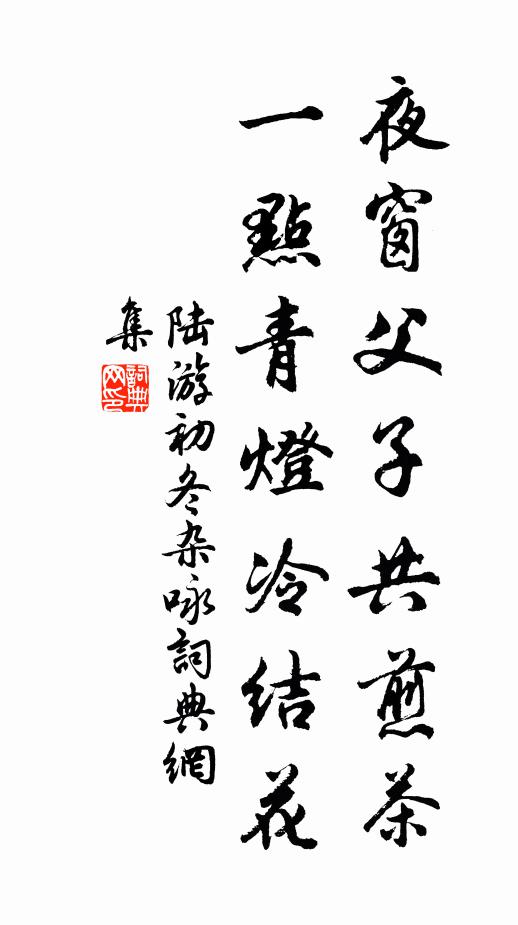 夜窗父子共煎茶
一點青燈冷結花
陆游初冬杂咏詞典網
集
詞典
网印